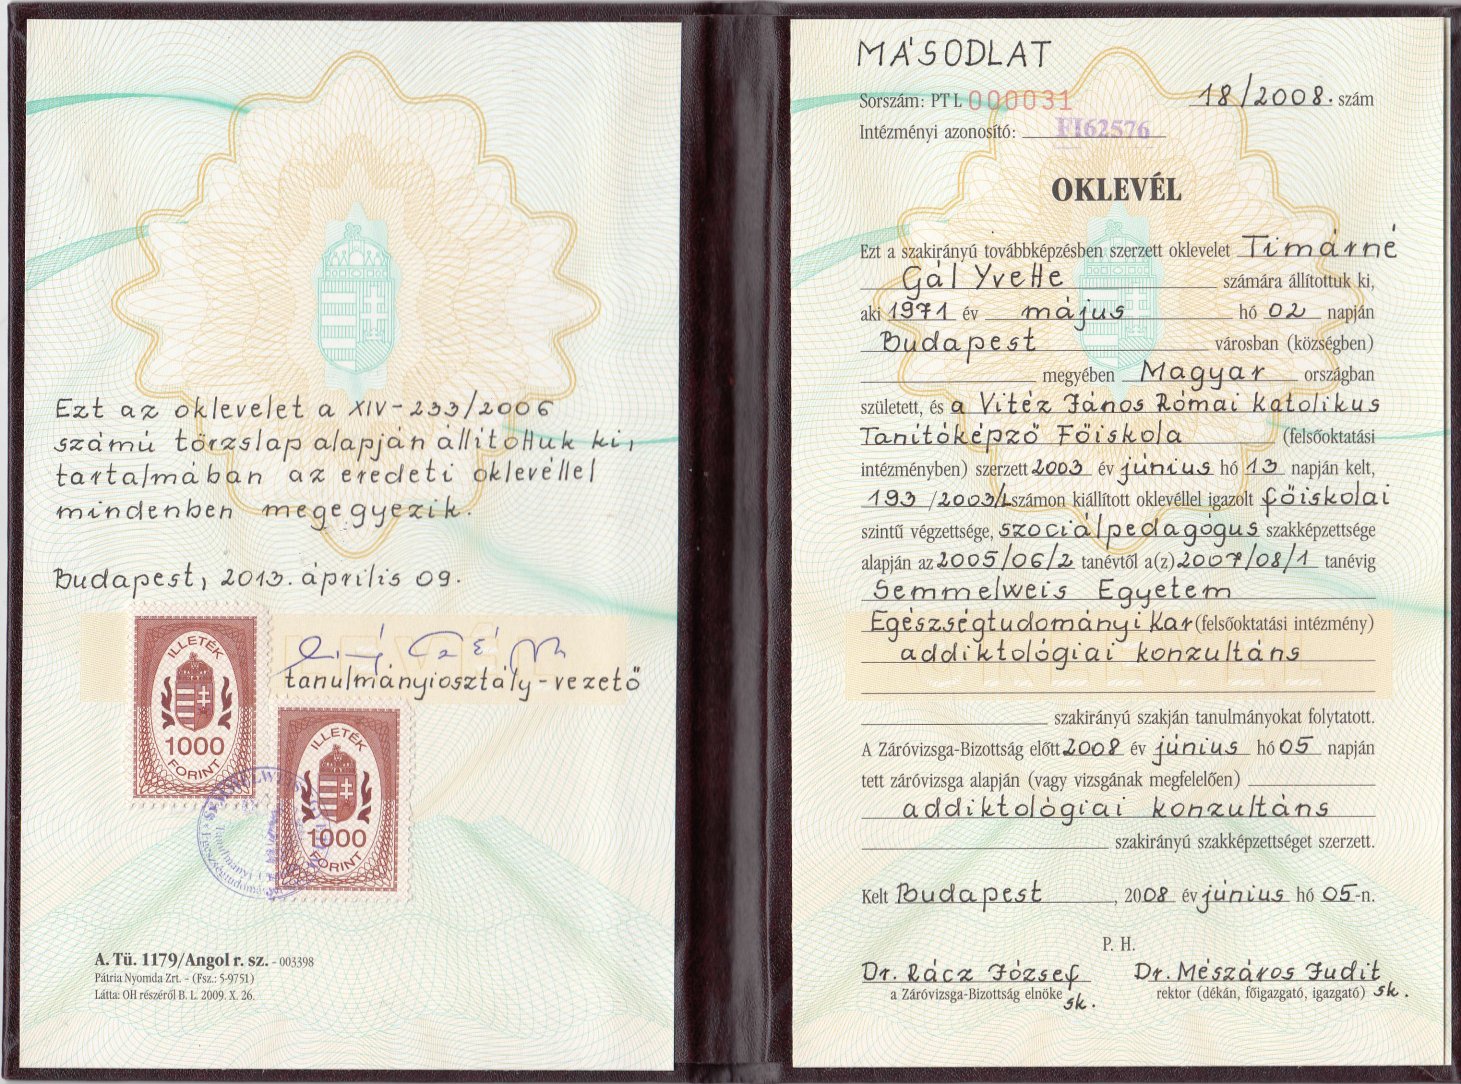 Ezt az oklevelet a XIV-233/2006
számú törzslap alapján állítottuk ki,
tartalmában az eredeti oklevéllel
mindenben megegyezik.
Budapest, 2013. április 09.
tanulmányiosztály-vezető
ILLETÉK
1000
FORINT
ILLETÉK
1000
FORINT
A. Tü. 1179/Angol r. sz. - 003398
Pátria Nyomda Zrt. - (Fsz.: 5-9751)
Látta: OH részéről B. L. 2009. X. 26.
MÁSODLAT
Sorszám: PTL 000031 18/2008. szám
Intézményi azonosító: FI62576
OKLEVÉL
Ezt a szakirányú továbbképzésben szerzett oklevelet Timárné
Gál Yvette számára állítottuk ki,
aki 1971 év május hó 02 napján
Budapest városban (községben)
megyében Magyar országban
született, és a Vitéz János Római Katolikus
Tanítóképző Főiskola (felsőoktatási
intézményben) szerzett 2003 év június hó 13 napján kelt,
193/2003/L számon kiállított oklevéllel igazolt főiskolai
szintű végzettsége, szociálpedagógus szakképzettsége
alapján az 2005/06/2 tanévtől a(z) 2007/08/1 tanévig
Semmelweis Egyetem
Egészségtudományi Kar (felsőoktatási intézmény)
addiktológiai konzultáns
szakirányú szakján tanulmányokat folytatott.
A Záróvizsga-Bizottság előtt 2008 év június hó 05 napján
tett záróvizsga alapján (vagy vizsgának megfelelően)
addiktológiai konzultáns
szakirányú szakképzettséget szerzett.
Kelt Budapest, 2008 év június hó 05-n.
P. H.
Dr. Rácz József Dr. Mészáros Judit
a Záróvizsga-Bizottság elnöke sk. rektor (dékán, főigazgató, igazgató) sk.